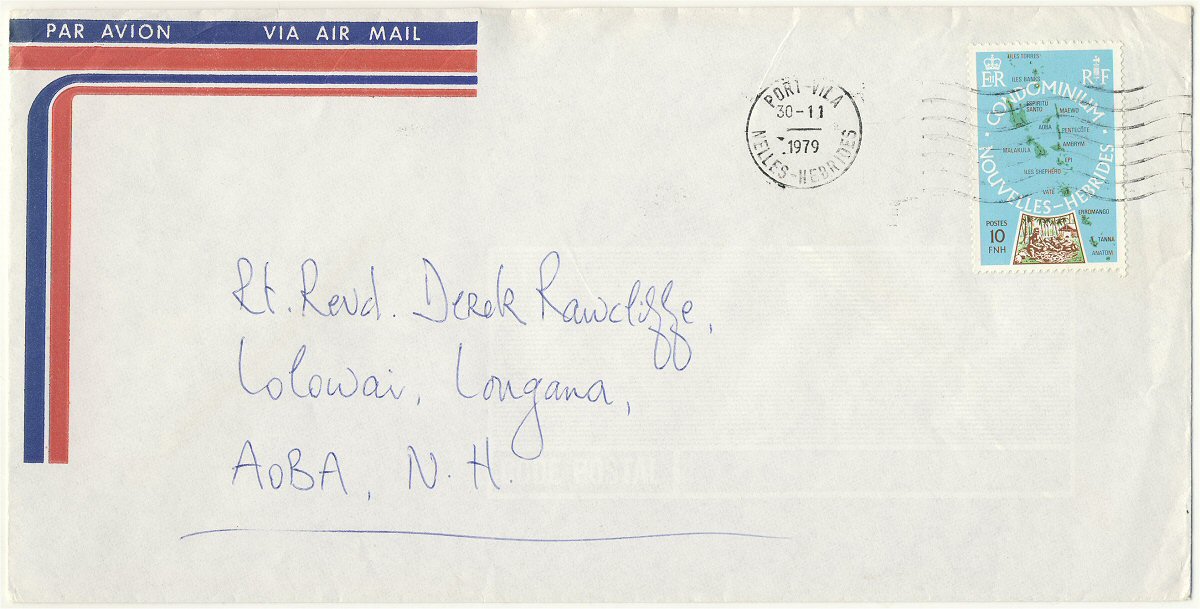 PAR AVION VIA AIR MAIL
PORT-VILA
30-11
1979
NELLES-HEBRIDES
EIIR
RF
ILES TORRES
ILES BANKS
CONDOMINIUM
ESPIRITU
SANTO
MAEWO
AOBA
PENTECÔTE
MALAKULA
AMBRYM
EPI
ILES SHEPHERD
VATÉ
NOUVELLES-HEBRIDES
ERROMANGO
POSTES
10
FNH
TANNA
ANATOM
Rt. Revd. Derek Rawcliffe,
Lolowai, Longana,
AOBA, N.H.